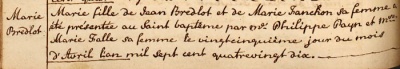 Marie
Bredlot
Marie fille de Jean Bredlot et de Marie Fanchon sa femme a
été présentée au Saint baptême par mr. Philippe Payn et Mme.
Marie Falle sa femme le vingtcinquième jour du mois
d'Avril l'an mil sept cent quatrevingt dix.